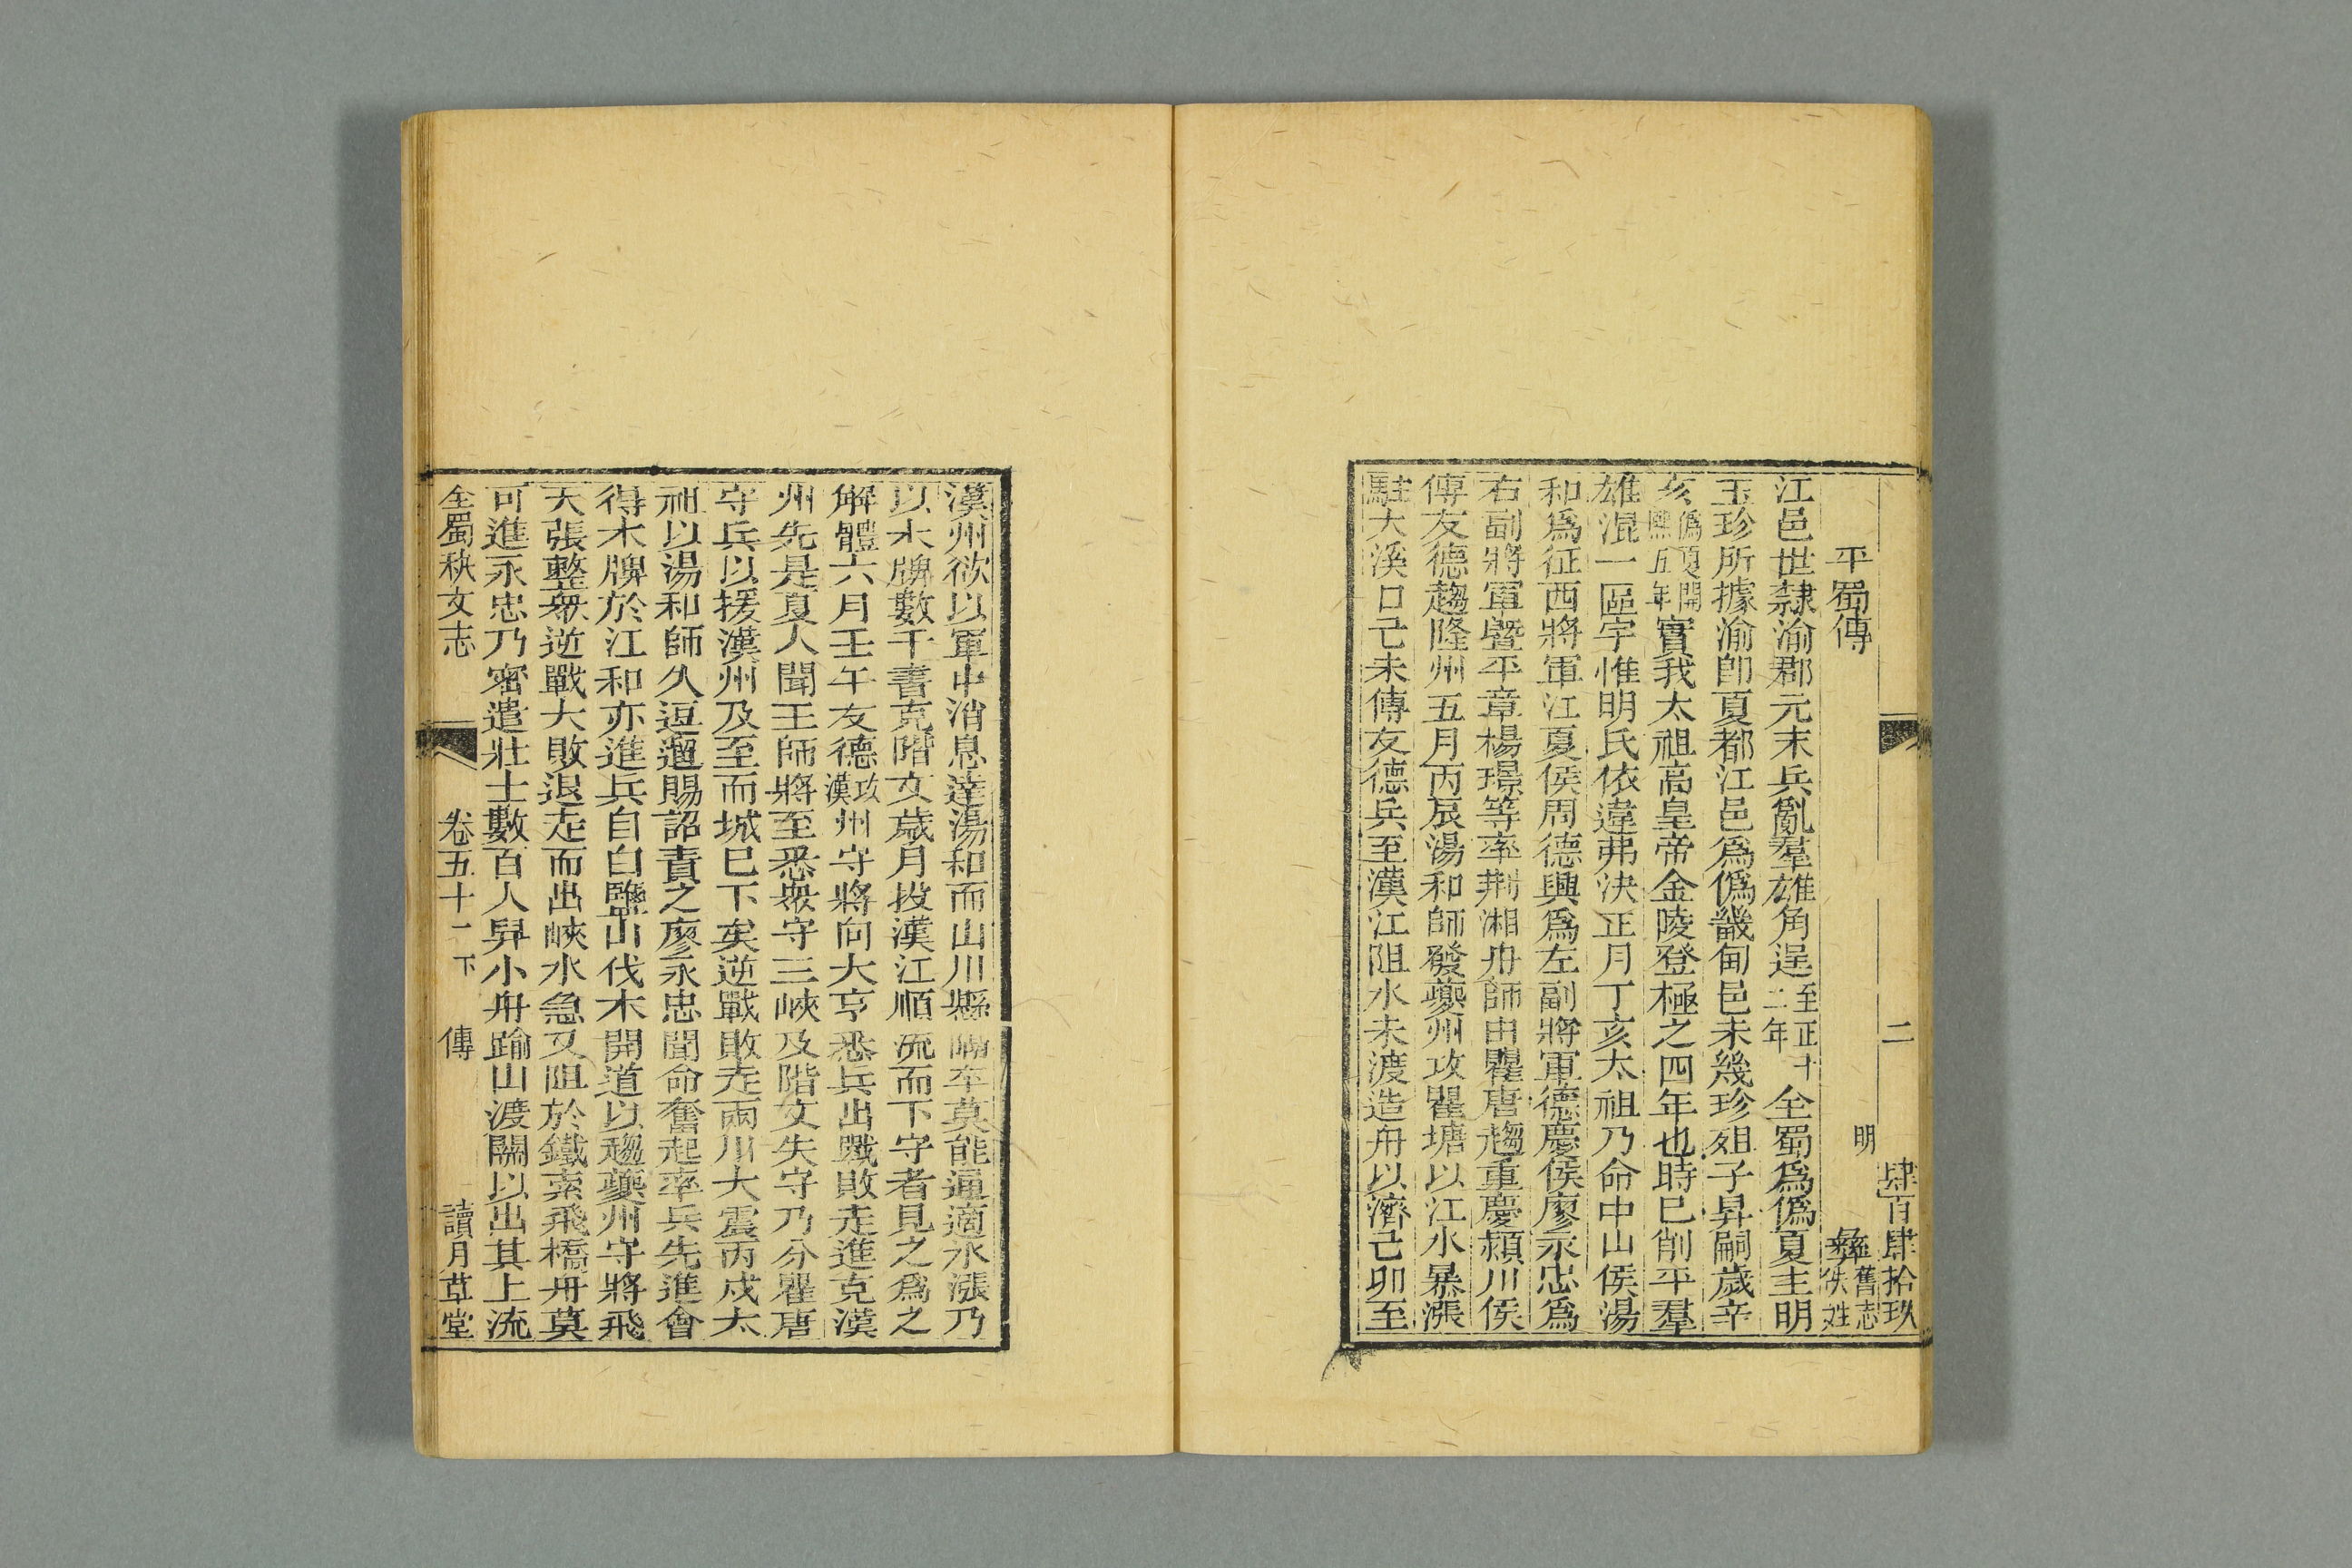 二 肆百肆拾玖
平蜀傳 明 彝舊志佚姓
江邑世隸渝郡元末兵亂羣雄角逞至正十二年全蜀爲僞夏主明
玉珍所據渝卽夏都江邑爲僞畿甸邑未幾珍殂子昇嗣歲辛
亥僞夏開熙五年實我太祖高皇帝金陵登極之四年也時巳削平羣
雄混一區宇惟明氏依違弗決正月丁亥太祖乃命中山侯湯
和爲征西將軍江夏侯周德興爲左副將軍德慶侯廖永忠爲
右副將軍曁平章楊璟等率荆湘舟師由瞿唐趨重慶潁川侯
傅友德趨隆州五月丙辰湯和師發夔州攻瞿塘以江水暴漲
駐大溪口己未傅友德兵至漢江阻水未渡造舟以濟己卯至
漢州欲以軍中消息達湯和而山川縣隔卒莫能逼適氷漲乃
以木牌數千書克階文歲月投漢江順流而下守者見之爲之
解體六月壬午友德攻漢州守將向大亨悉兵出戰敗走進克漢
州先是夏人聞王師將至悉衆守三峽及階文失守乃分瞿唐
守兵以援漢州及至而城巳下矣逆戰敗走兩川大震丙戍太
祖以湯和師久逗遛賜詔責之廖永忠聞命奮起率兵先進會
得木牌於江和亦進兵自白鹽山伐木開道以趨夔州守將飛
天張整衆逆戰大敗退走而出峽水急又阻於鐵索飛橋舟莫
可進永忠乃密遣壯士數百人舁小舟踰山渡關以出其上流
全蜀秇文志 卷五十一下 傳 讀月草堂